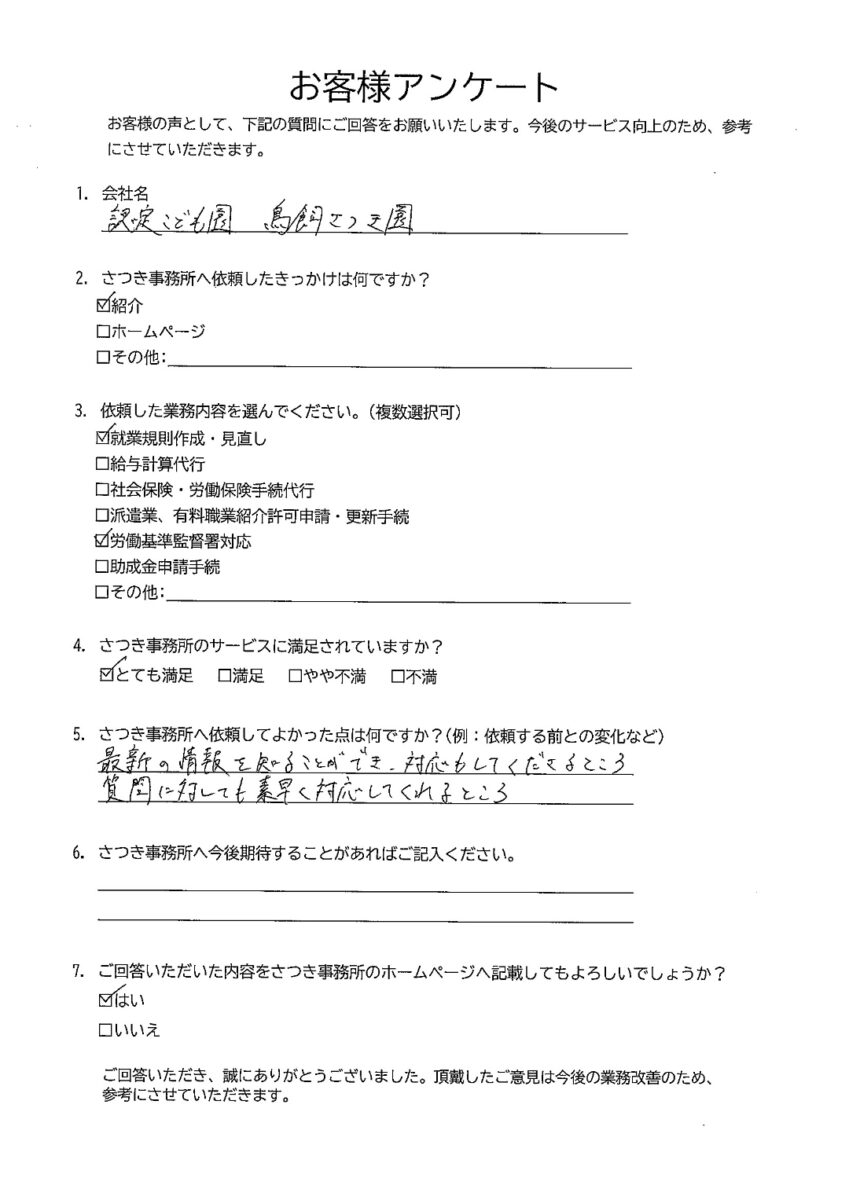 お客様アンケート
お客様の声として、下記の質問にご回答をお願いいたします。今後のサービス向上のため、参考
にさせていただきます。
1. 会社名
認定こども園 鳥飼さつき園
2. さつき事務所へ依頼したきっかけは何ですか？
☑紹介
□ホームページ
□その他：
3. 依頼した業務内容を選んでください。（複数選択可）
☑就業規則作成・見直し
□給与計算代行
□社会保険・労働保険手続代行
□派遣業、有料職業紹介許可申請・更新手続
☑労働基準監督署対応
□助成金申請手続
□その他：
4. さつき事務所のサービスに満足されていますか？
☑とても満足 □満足 □やや不満 □不満
5. さつき事務所へ依頼してよかった点は何ですか？（例：依頼する前との変化など）
最新の情報を知ることができ、対応もしてくださるところ
質問に対しても素早く対応してくれるところ
6. さつき事務所へ今後期待することがあればご記入ください。
7. ご回答いただいた内容をさつき事務所のホームページへ記載してもよろしいでしょうか？
☑はい
□いいえ
ご回答いただき、誠にありがとうございました。頂戴したご意見は今後の業務改善のため、
参考にさせていただきます。